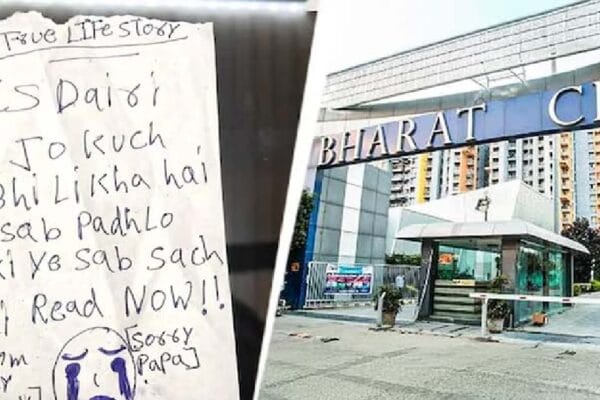 TRUE LIFE STORY
iS Dairi
Jo kuch
bhi Likha hai
sab Padhlo
ki ye sab sach
Read NOW!!
[sorry
Papa]
BHARAT CI